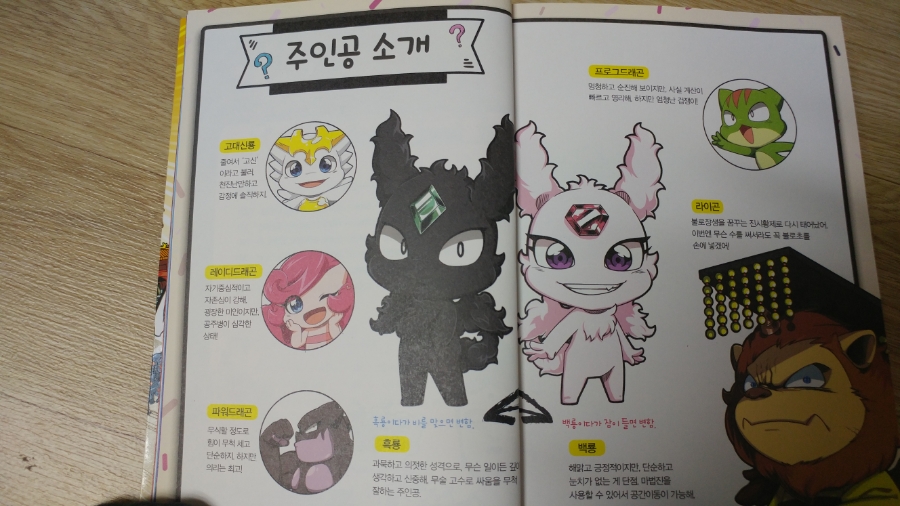 주인공 소개
고대신룡
줄여서 '고신'
이라고 불러.
천진난만하고
감정에 솔직하지.
레이디드래곤
자기중심적이고
자존심이 강해.
굉장한 미인이지만,
공주병이 심각한
상태!
파워드래곤
무식할 정도로
힘이 무척 세고
단순하지. 하지만
의리는 최고!
흑룡이다가 비를 맞으면 변함.
흑룡
과묵하고 의젓한 성격으로, 무슨 일이든 깊이
생각하고 신중해. 무술 고수로 싸움을 무척
잘하는 주인공.
프로그드래곤
멍청하고 순진해 보이지만, 사실 계산이
빠르고 영리해. 하지만 엄청난 겁쟁이!
라이곤
불로장생을 꿈꾸는 진시황제로 다시 태어났어.
이번엔 무슨 수를 써서라도 꼭 불로초를
손에 넣겠어!
백룡이다가 잠이 들면 변함.
백룡
해맑고 긍정적이지만, 단순하고
눈치가 없는 게 단점. 마법진을
사용할 수 있어서 공간이동이 가능해.